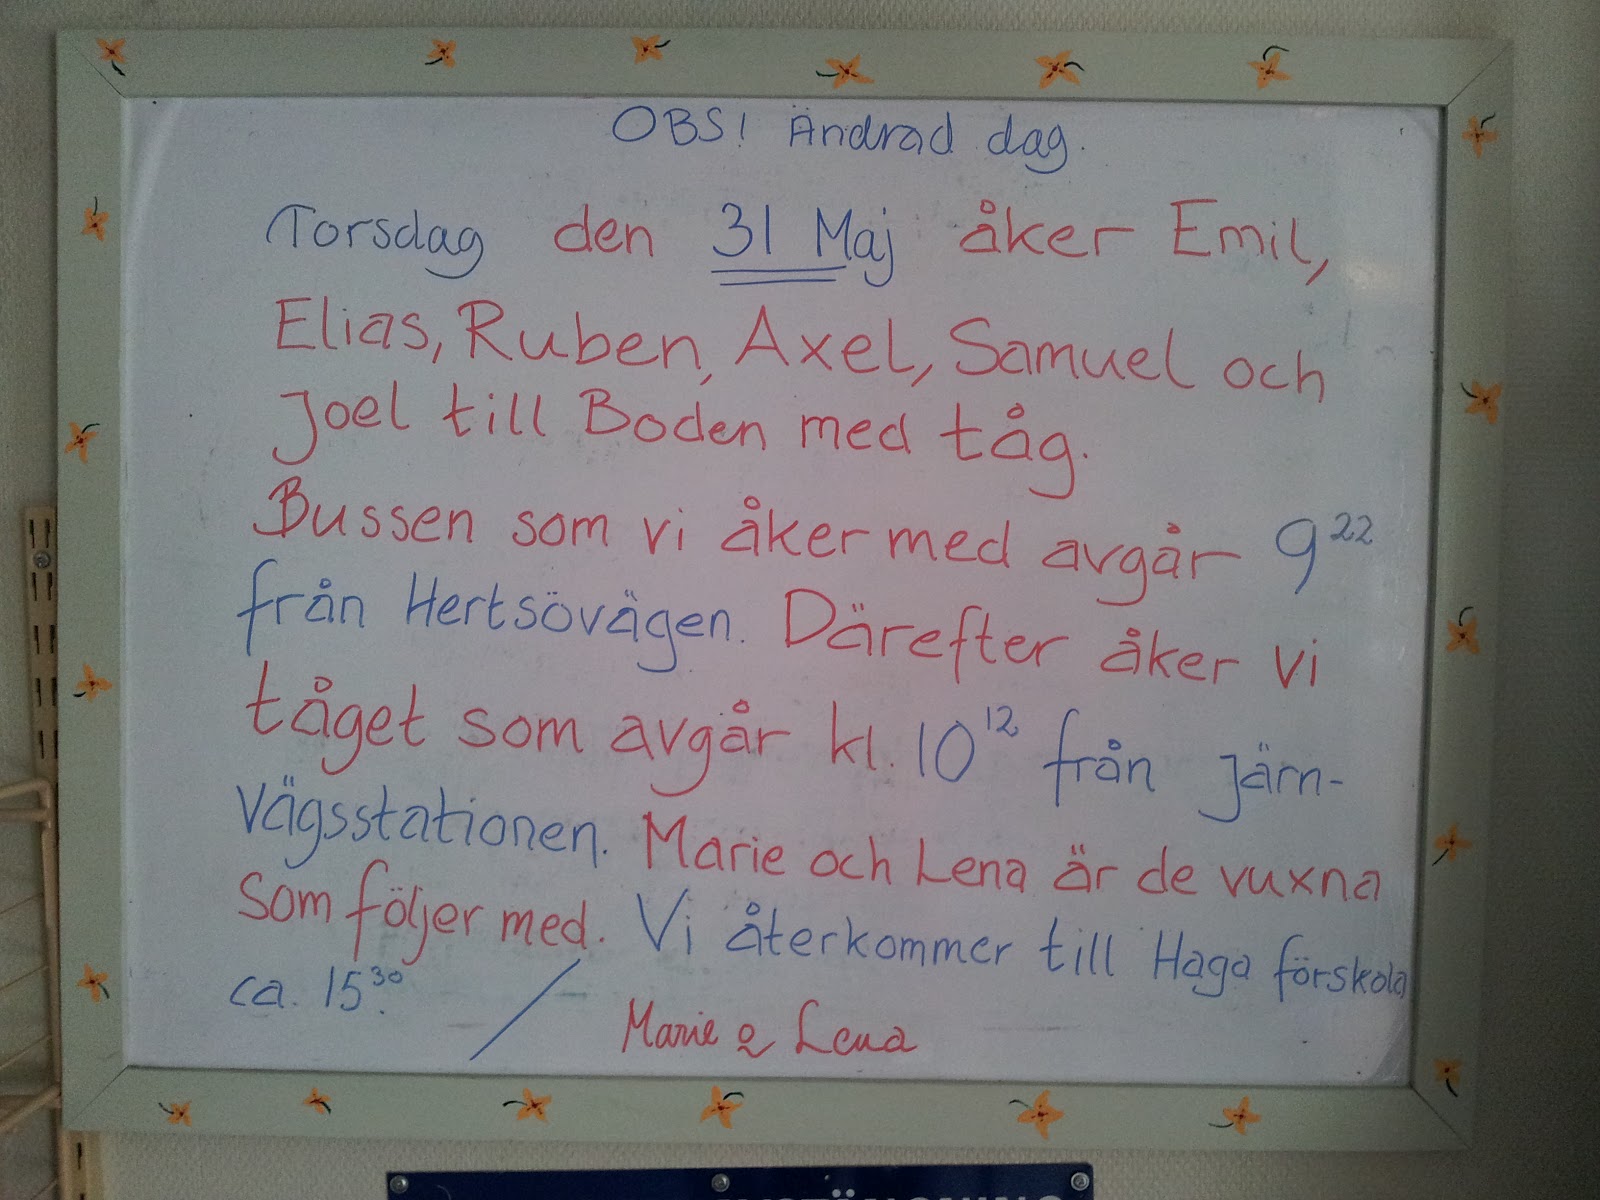 OBS! Ändrad dag.
Torsdag den 31 Maj åker Emil,
Elias, Ruben, Axel, Samuel och
Joel till Boden med tåg.
Bussen som vi åker med avgår 9²²
från Hertsövägen. Därefter åker vi
tåget som avgår kl. 10¹² från järn-
vägsstationen. Marie och Lena är de vuxna
som följer med. Vi återkommer till Haga förskola
ca. 15³⁰.
/ Marie & Lena